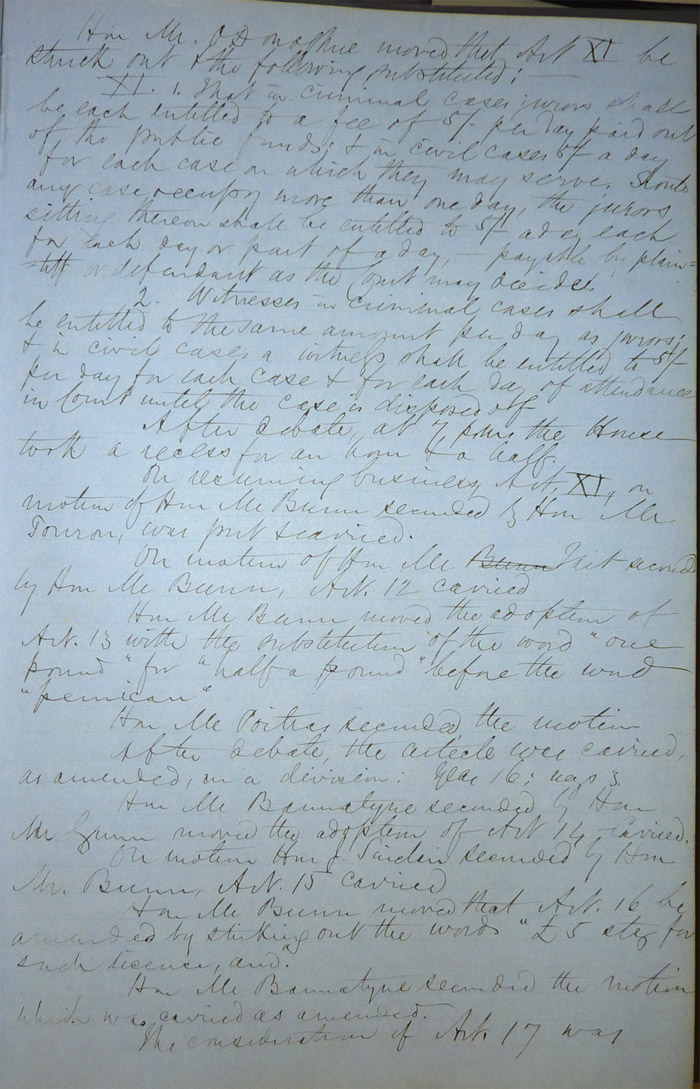 Hon Mr. O'Donoghue moved that Art XI be
struck out & the following substituted; —
XI. 1. That in criminal cases jurors shall
be each entitled to a fee of 5/- per day paid out
of the public funds; & in civil cases 5/- a day
for each case on which they may serve. Should
any case occupy more than one day, the jurors
sitting thereon shall be entitled to 5/- a day each
for each day or part of a day, — payable by plain=
tiff or defendant as the Court may decide.
2. Witnesses in criminal cases shall
be entitled to the same amount per day as jurors;
& in civil cases a witness shall be entitled to 5/-
per day for each case & for each day of attendance
in Court until the case is disposed of
After debate, at 7 p.m. the House
took a recess for an hour & a half.
On resuming business, Art. XI, on
motion of Hon Mr Bunn seconded by Hon Mr
Touron, was put & carried.
On motion of Hon Mr Bunn Tait seconded
by Hon Mr Bunn, Art. 12 carried
Hon Mr Bunn moved the adoption of
Art. 13 with the substitution of the word "one
pound" for "half a pound" before the word
"pemican"
Hon Mr Poitras seconded the motion
After debate, the article was carried,
as amended, on a division: Yeas 16; nays 3.
Hon Mr Bannatyne seconded by Hon
Mr Gunn moved the adoption of Art 14, carried.
On motion Hon J. Sinclair seconded by Hon
Mr. Bunn, Art. 15 carried
Hon Mr Bunn moved that Art. 16 be
amended by striking out the words "£5 stg for
such license, and.
Hon Mr Bannatyne seconded the motion
which was carried as amended.
The consideration of Art. 17 was